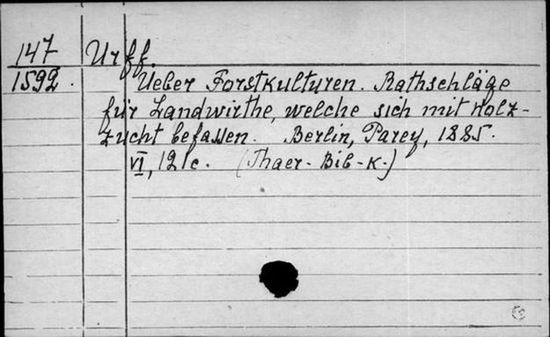 147 Urff.
1592. Ueber Forstkulturen. Rathschläge
für Landwirthe, welche sich mit Holz-
zucht befassen. Berlin, Parey, 1885.
VI, 121c. (Thaer-Bib-K.)